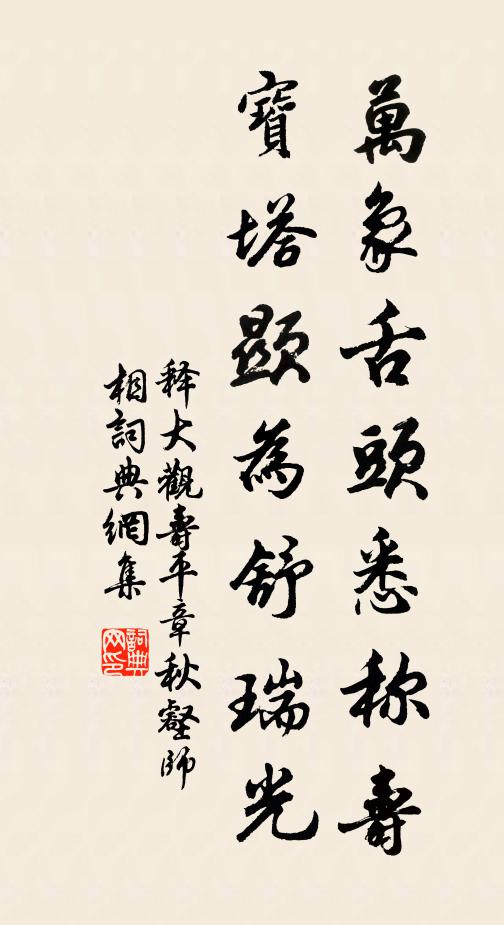 萬象舌頭悉称壽
寶塔顯為舒瑞光
释大觀壽平章秋壑師
相詞典網集
詞典网印